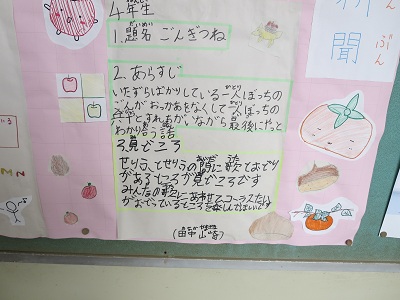 4年生
1.題名 ごんぎつね
2.あらすじ
いたずらばかりしている一人ぼっちの
ごんがおっかあをなくして一人ぼっちの
兵十とすれちがいながら最後にやっと
わかり合う話
3.見どころ
せりふとせりふの間に歌とおどり
があるところが見どころです
みんなの歌にあわせてコーラスたい
がおどっているところを楽しんでほしいです
(田中 山崎)
新聞
ぶん